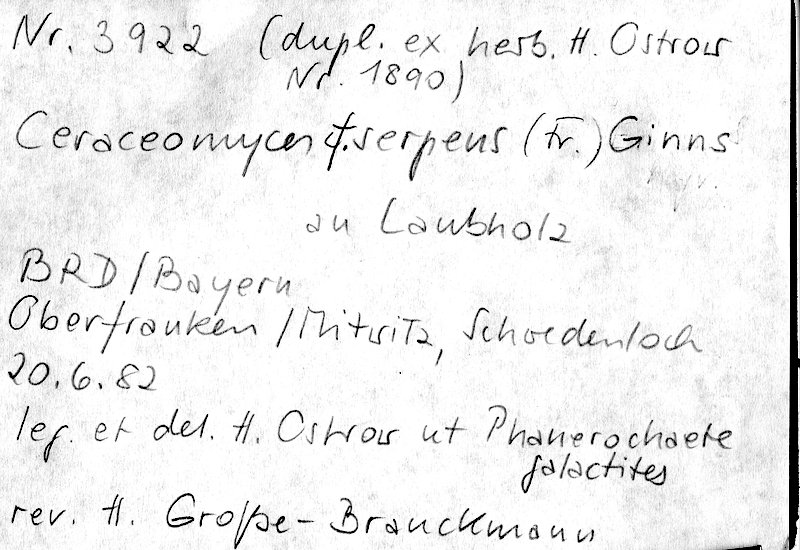 Nr. 3922 (dupl. ex herb. H. Ostrow
Nr. 1890)
Ceraceomyces serpens (Fr.) Ginns
an Laubholz
BRD/Bayern
Oberfranken/Mitwitz,
20.6.82
leg. et det. H. Ostrow ut Phanerochaete
galactites
rev. H. Große-Brauckmann